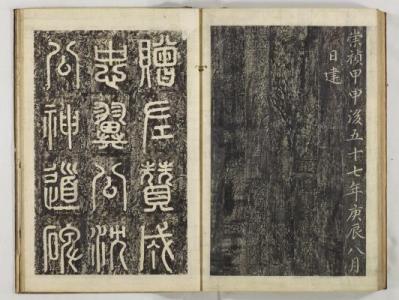 崇禎甲申後五十七年庚辰八月
日建
贈左贊成
忠翼公沈
公神道碑